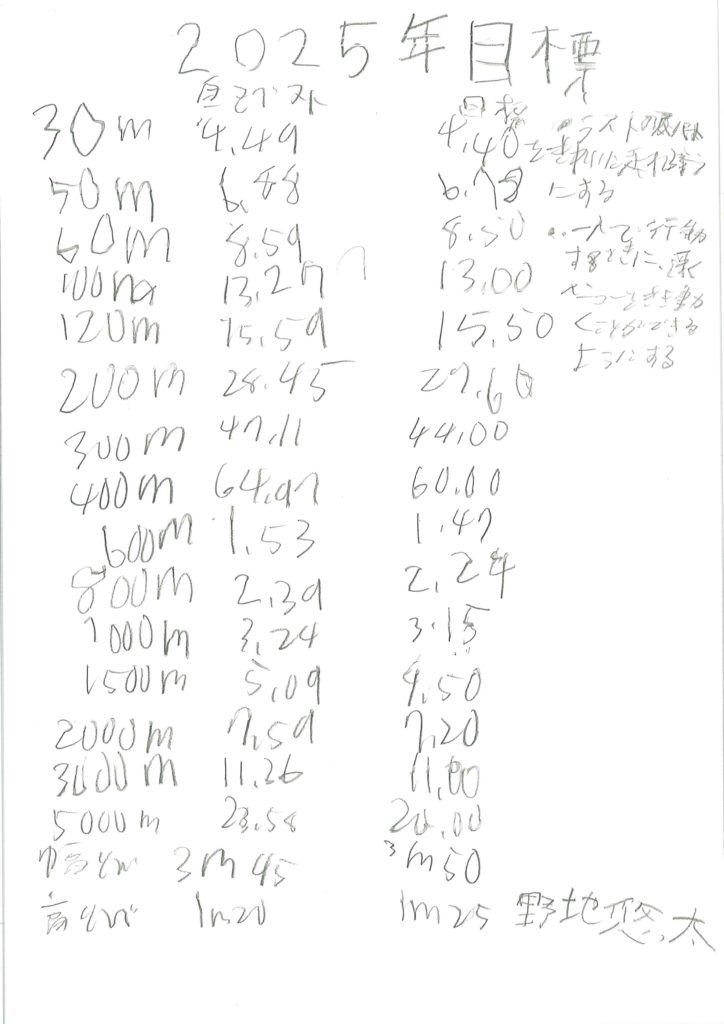 2025年目標
自己ベスト 目標
30m 4.49 4.40
50m 6.88 6.78
60m 8.59 8.50
100m 13.27 13.00
120m 15.59 15.50
200m 28.45 27.60
300m 47.11 44.00
400m 64.97 60.00
600m 1.53 1.47
800m 2.39 2.24
1000m 3.24 3.15
1500m 5.09 4.50
2000m 7.59 7.20
3000m 11.26 11.00
5000m 23.58 20.00
幅とび 3m45 3m50
高とび 1m20 1m25
・ラストの
をきれいに走れるよう
にする
・一人で行動
するときに、深く
動
くことができる
ようにする
野地悠太